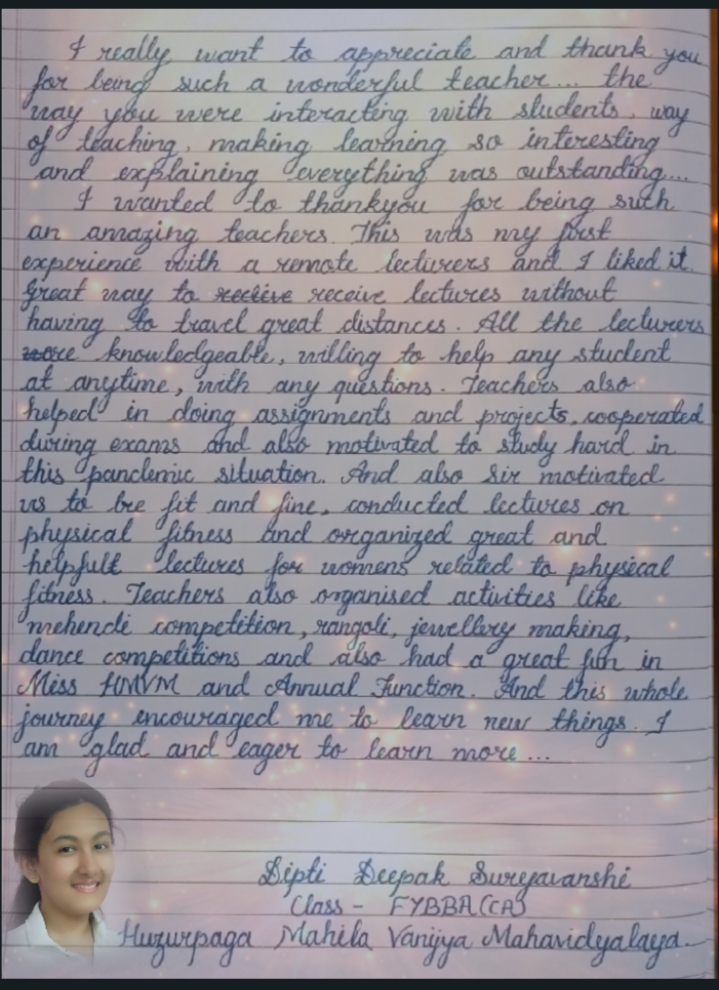 I really want to appreciate and thank you
for being such a wonderful teacher... the
way you were interacting with students, way
of teaching, making learning so interesting
and explaining everything was outstanding...
I wanted to thankyou for being such
an amazing teachers. This was my first
experience with a remote lecturers and I liked it.
Great way to recieve receive lectures without
having to travel great distances. All the lecturers
were knowledgeable, willing to help any student
at anytime, with any questions. Teachers also
helped in doing assignments and projects, cooperated
during exams and also motivated to study hard in
this pandemic situation. And also sir motivated
us to be fit and fine, conducted lectures on
physical fitness and organized great and
helpfull lectures for womens related to physical
fitness. Teachers also organised activities like
mehendi competition, rangoli, jewellery making,
dance competitions and also had a great fun in
Miss HMVM and Annual Function. And this whole
journey encouraged me to learn new things. I
am glad and eager to learn more...
Dipti Deepak Suryavanshi
Class - FYBBA(CA)
Huzurpaga Mahila Vanijya Mahavidyalaya.